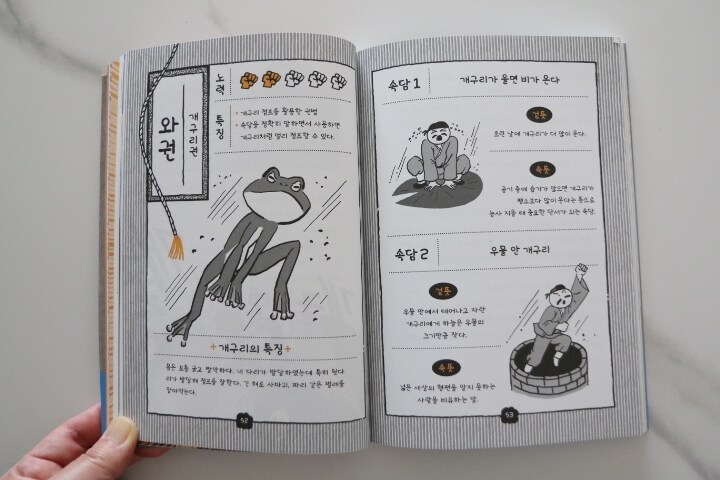 와권
개구리권
노력
특징
• 개구리 점프를 활용한 권법
• 속담을 정확히 말하면서 사용하면
개구리처럼 멀리 점프할 수 있다.
+ 개구리의 특징 +
몸은 보통 굵고 짤막하다. 네 다리가 발달하였는데 특히 뒷다
리가 발달해 점프를 잘한다. 긴 혀로 사마귀, 파리 같은 벌레를
잡아먹는다.
52
속담 1
개구리가 울면 비가 온다
겉뜻
흐린 날에 개구리가 더 많이 운다.
속뜻
공기 중에 습기가 많으면 개구리가
평소보다 많이 운다는 뜻으로
농사 지을 때 중요한 단서가 되는 속담.
속담 2
우물 안 개구리
겉뜻
우물 안에서 태어나고 자란
개구리에게 하늘은 우물의
크기만큼 작다.
속뜻
넓은 세상의 형편을 알지 못하는
사람을 비유하는 말.
53